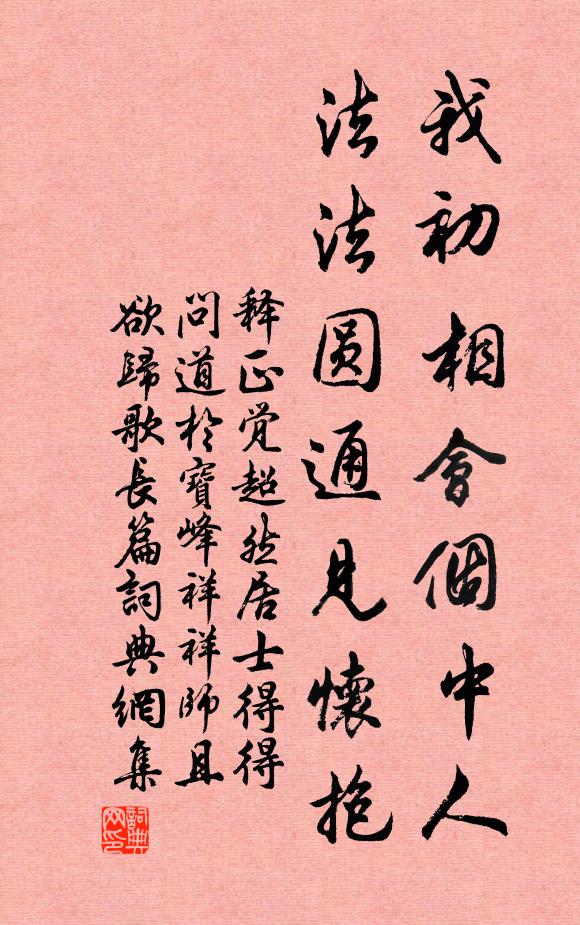 我初相會個中人
法法圓通見懷抱
释正觉超然居士得得
問道於寶峰祥祥師且
欲歸歌長篇詞典網集
詞典
网印